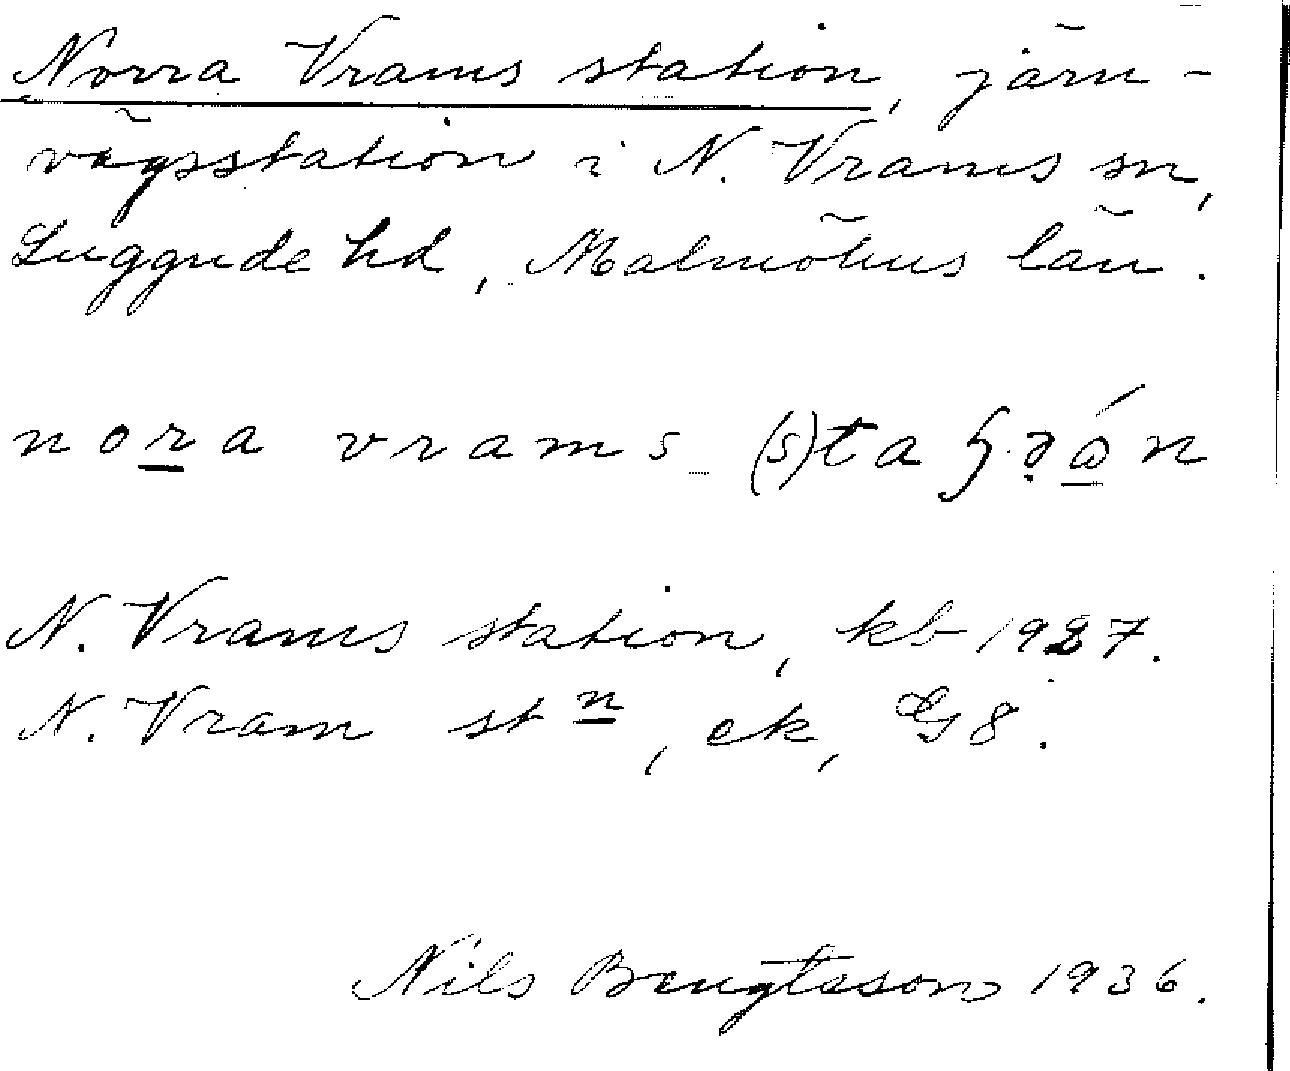 Norra Vrams station, järn-
vägsstation i N. Vrams sn,
Luggude hd, Malmöhus län.
nora vrams
N. Vrams station, kb 1927.
N. Vram stn, ek, G8.
Nils Bengtsson 1936.